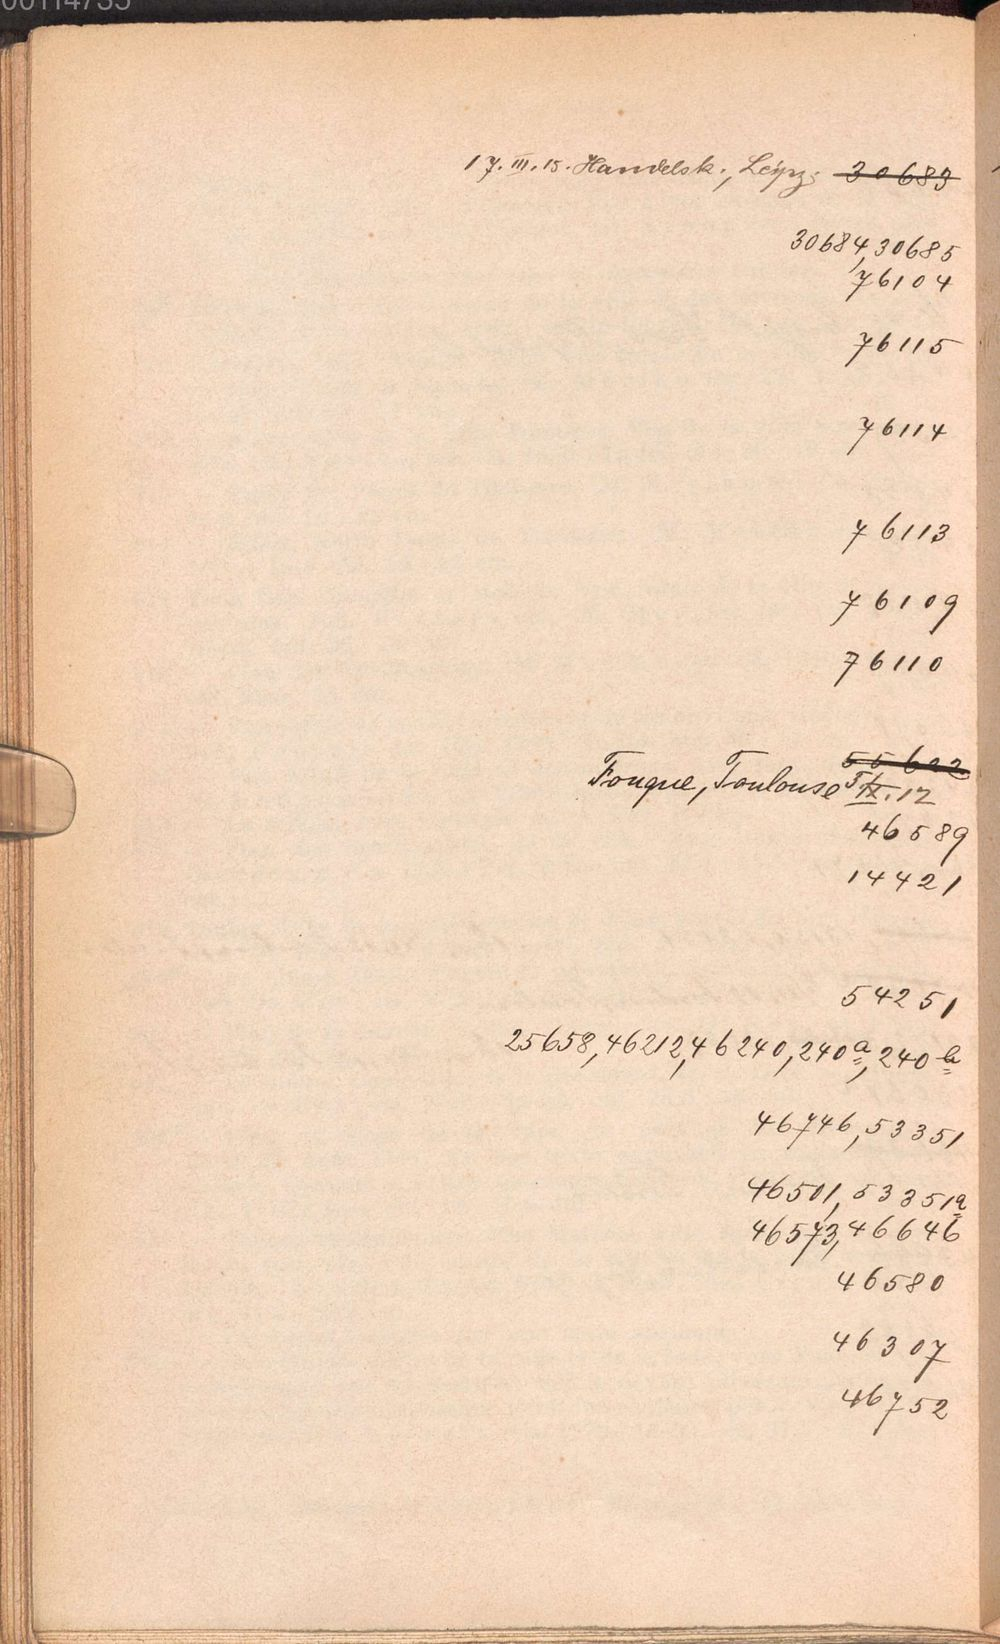 17. III. 15. Handelsk., Leipz. 30683
30684, 30685
76104
76115
76114
76113
76109
76110
55622
Fouque, Toulouse 5/IX. 12
46589
14421
54251
25658, 46212, 46240, 240a, 240b
46746, 53351
46501, 53351a
46573, 46646
46580
46307
46752